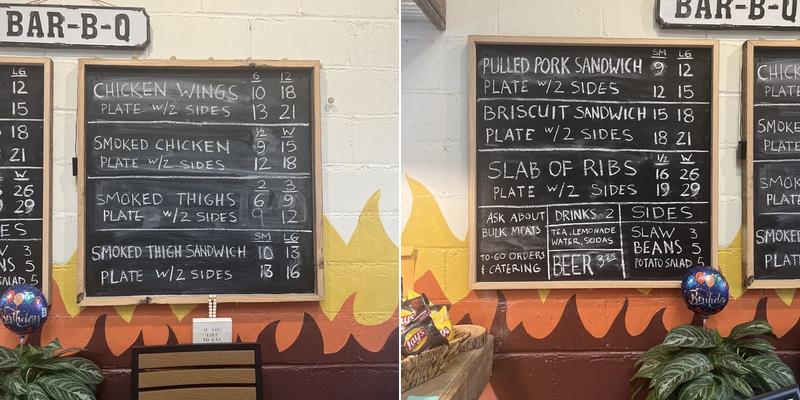 BAR-B-Q
LG
12
15
18
21
W
26
29
6 12
CHICKEN WINGS 10 18
PLATE W/2 SIDES 13 21
½ W
SMOKED CHICKEN 9 15
PLATE W/2 SIDES 12 18
2 3
SMOKED THIGHS 6 9
PLATE W/2 SIDES 9 12
SM LG
SMOKED THIGH SANDWICH 10 13
PLATE W/2 SIDES 13 16
DES
W 3
NS 5
SALAD 5
Birthday
IF YOU
LIKE
TO EAT
BAR-B-Q
SM LG
PULLED PORK SANDWICH 9 12
PLATE W/2 SIDES 12 15
BRISCUIT SANDWICH 15 18
PLATE W/2 SIDES 18 21
½ W
SLAB OF RIBS 16 26
PLATE W/2 SIDES 19 29
ASK ABOUT
BULK MEATS
TO-GO ORDERS
& CATERING
DRINKS 2
TEA, LEMONADE
WATER, SODAS
BEER 3.25
SIDES
SLAW 3
BEANS 5
POTATO SALAD 5
CHICK
PLATE
SMOKE
PLATE
SMO
PLATE
SMOKE
PLATE
Lay's